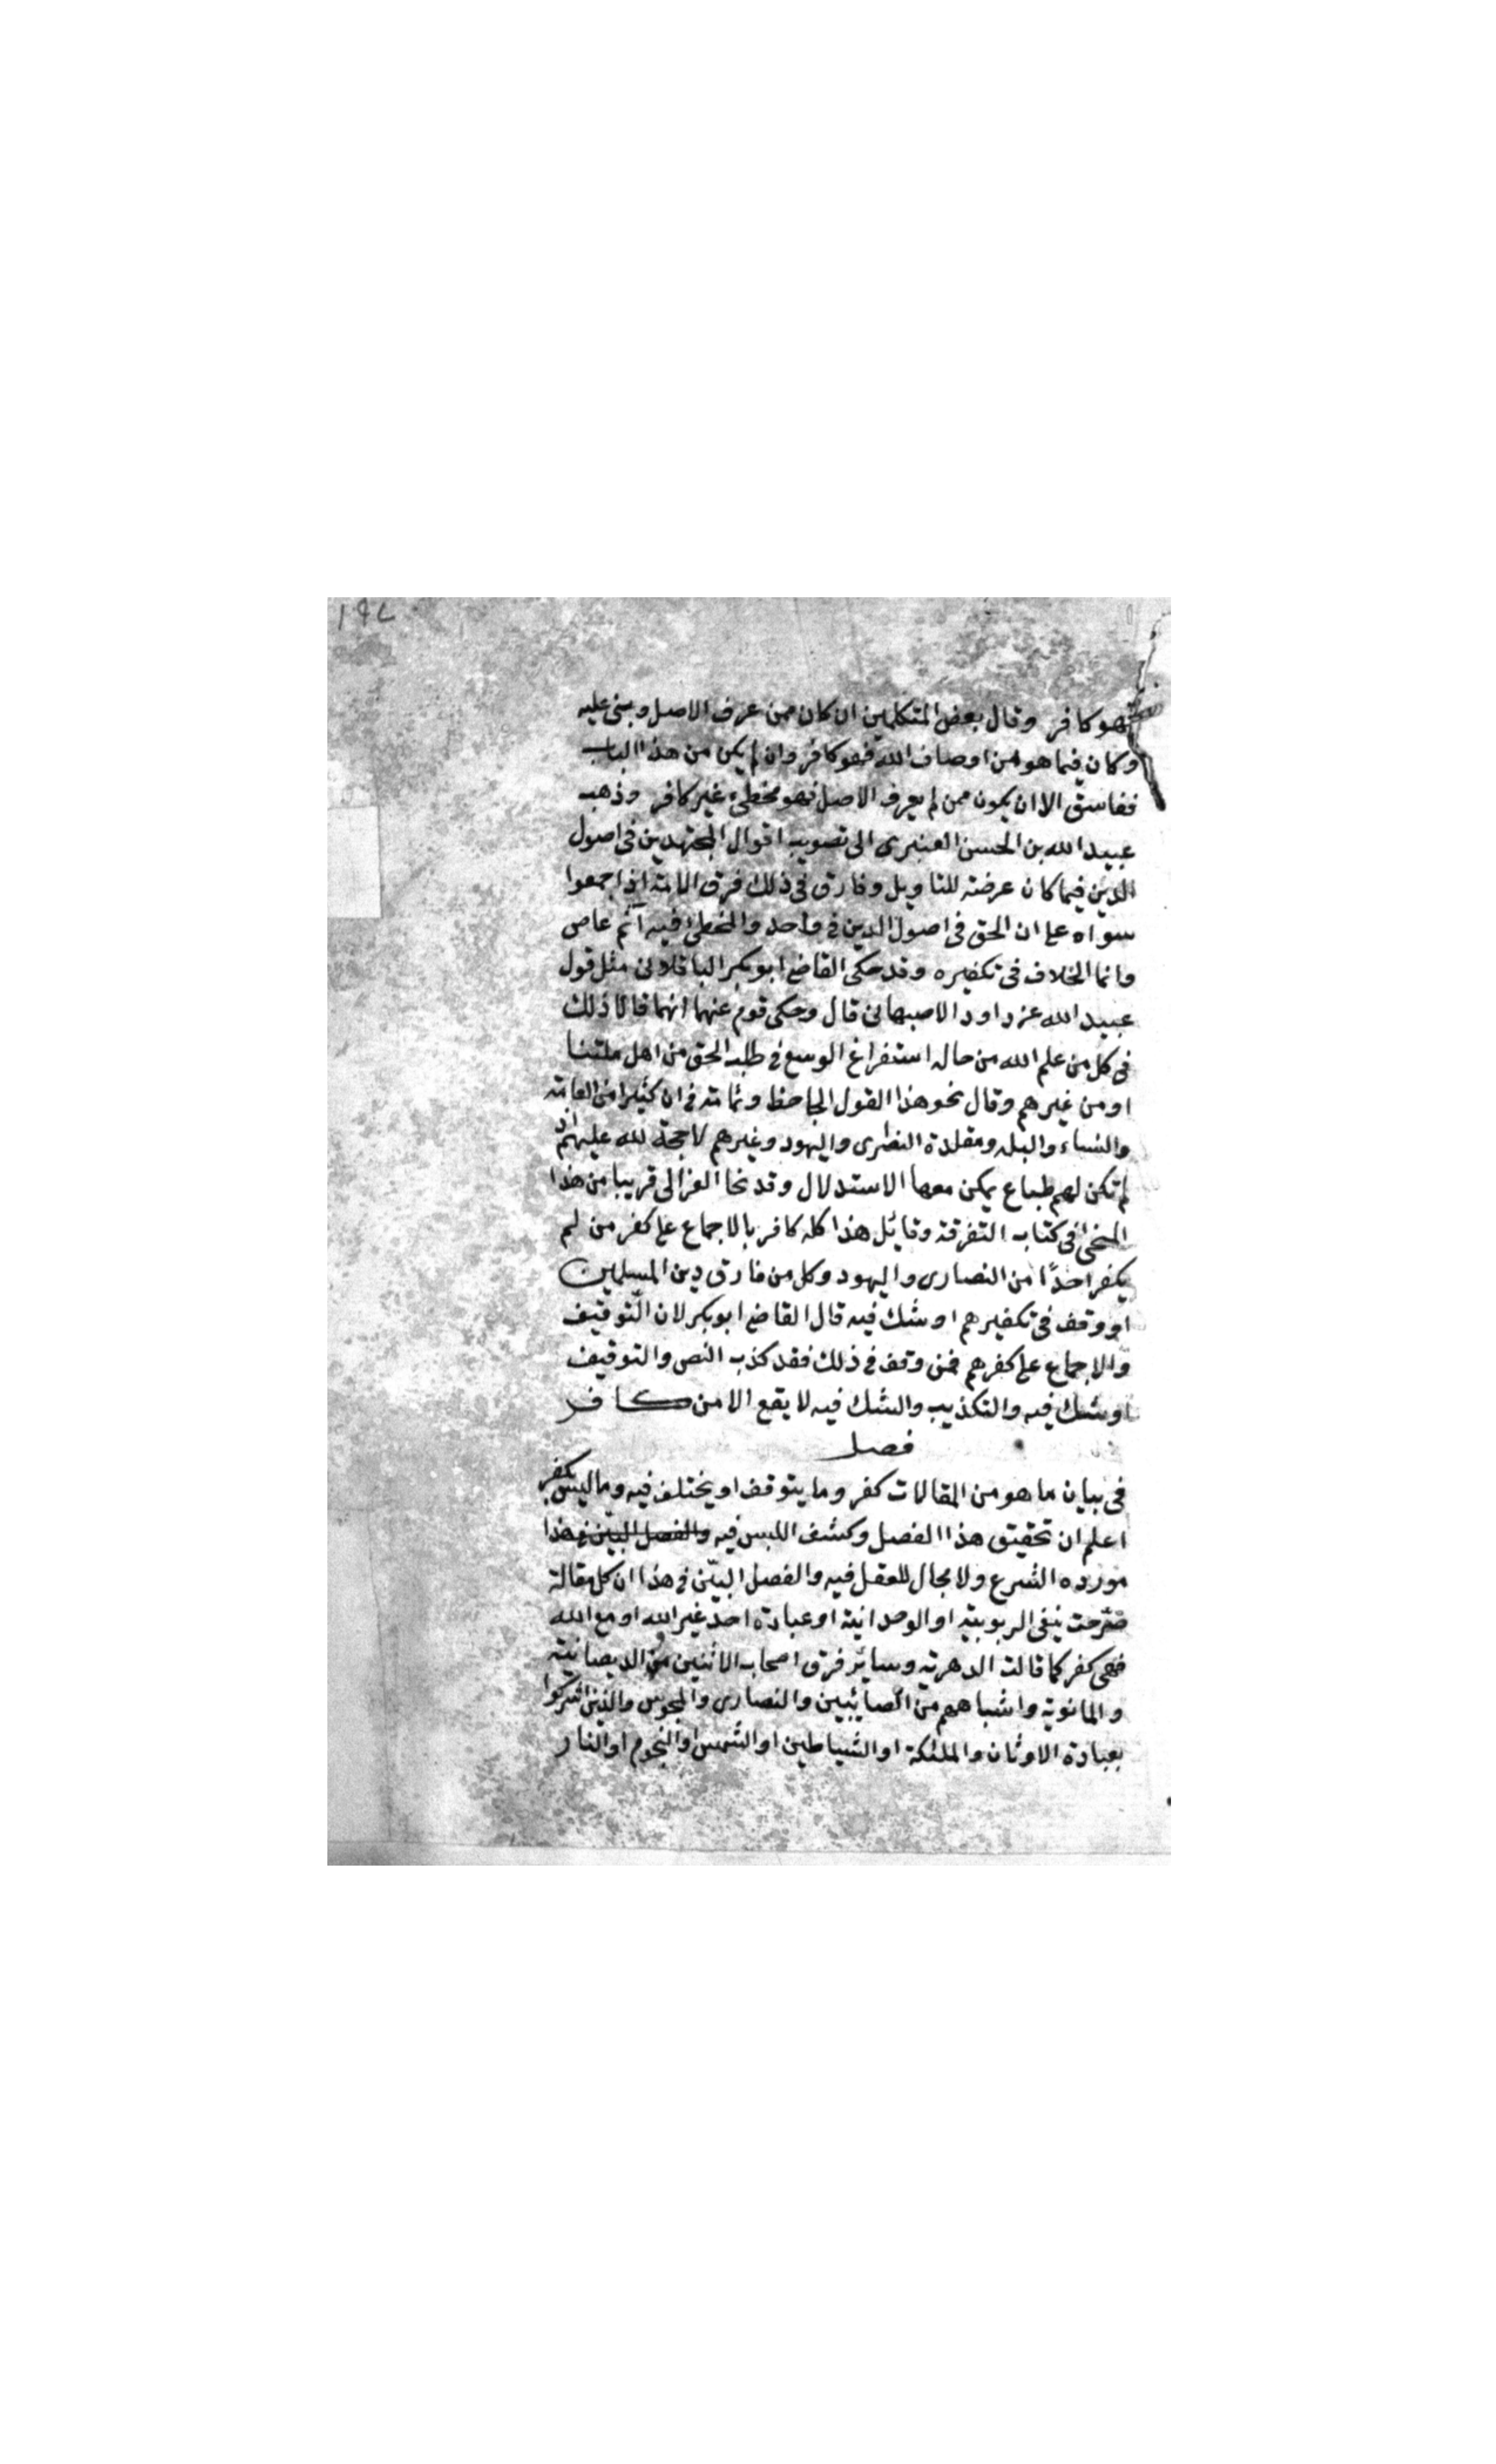 ١٩٧
فهو كافر وقال بعض المتكلمين ان كان ممن عرف الاصل وبنى عليه
وكان فيما هو من اوصاف الله فهو كافر وان لم يكن من هذا الباب
ففاسق الا ان يكون ممن لم يعرف الاصل فهو مخطئ غير كافر وذهب
عبيد الله بن الحسن العنبرى الى تصويب اقوال المجتهدين فى اصول
الدين فيما كان عرضة للتاويل وفارق فى ذلك فرق الامة اذ اجمعوا
سواه على ان الحق فى اصول الدين فى واحد والمخطئ فيه آثم عاص
وانما الخلاف فى تكفيره وقد حكى القاضى ابو بكر الباقلانى مثل قول
عبيد الله عن داود الاصبهانى قال وحكى قوم عنهما انهما قالا ذلك
فى كل من علم الله من حاله استفراغ الوسع فى طلب الحق من اهل ملتنا
او من غيرهم وقال نحو هذا القول الجاحظ وثمامة فى ان كثيرا من العامة
والنساء والبله ومقلدة النصرى واليهود وغيرهم لا حجة لله عليهم اذ
لم تكن لهم طباع يمكن معها الاستدلال وقد نحا الغزالى قريبا من هذا
المنحى فى كتاب التفرقة وقائل هذا كله كافر بالاجماع على كفر من لم
يكفر احدًا من النصارى واليهود وكل من فارق دين المسلمين
او وقف فى تكفيرهم او شك فيه قال القاضى ابو بكر لان التوقيف
والاجماع على كفرهم فمن وقف فى ذلك فقد كذب النص والتوقيف
او شك فيه والتكذيب والشك فيه لا يقع الا من كافر
فصل
فى بيان ما هو من المقالات كفر وما يتوقف او يختلف فيه وما ليس بكفر
اعلم ان تحقيق هذا الفصل وكشف اللبس فيه والفصل البين فى هذا
مورده الشرع ولا مجال للعقل فيه والفصل البيّن فى هذا ان كل مقالة
صرّحت بنفى الربوبية او الوحدانية او عبادة احد غير الله او مع الله
فهى كفر كما قالت الدهرية وسائر فرق اصحاب الاثنين من الديصانية
والمانوية واشباههم من الصائبين والنصارى والمجوس والذين اشركوا
بعبادة الاوثان والملئكة او الشياطين او الشمس او النجوم او النار